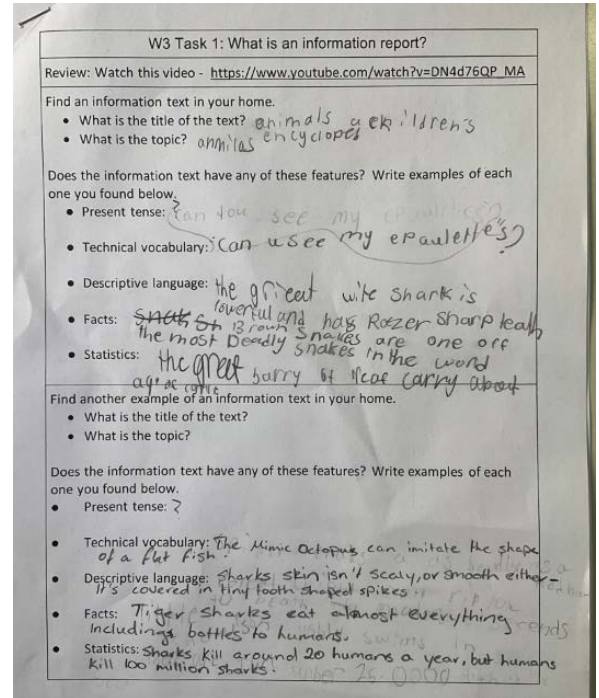 W3 Task 1: What is an information report?
Review: Watch this video - https://www.youtube.com/watch?v=DN4d76QP_MA
Find an information text in your home.
• What is the title of the text? animals a ckildren's
• What is the topic? annilas encyclopet
Does the information text have any of these features? Write examples of each
one you found below.
• Present tense: ? can you see my epaulettes
• Technical vocabulary: Can u see my epaulette's?
• Descriptive language: the grieat wite shark is
powerful and has Rozer sharp teath
• Facts: Brown Snakes are one off
the most Deadly snakes in the word
• Statistics: the great barry of reaf carry about
Find another example of an information text in your home.
• What is the title of the text?
• What is the topic?
Does the information text have any of these features? Write examples of each
one you found below.
• Present tense: ?
• Technical vocabulary: The Mimic Octopus can imitate the shape
of a flat fish.
• Descriptive language: Sharks skin isn't scaly, or smooth either-
It's covered in tiny tooth shaped spikes.
• Facts: Tiger sharks eat almost everything
Including bottles to humans.
• Statistics: Sharks kill around 20 humans a year, but humans
kill 100 million sharks.